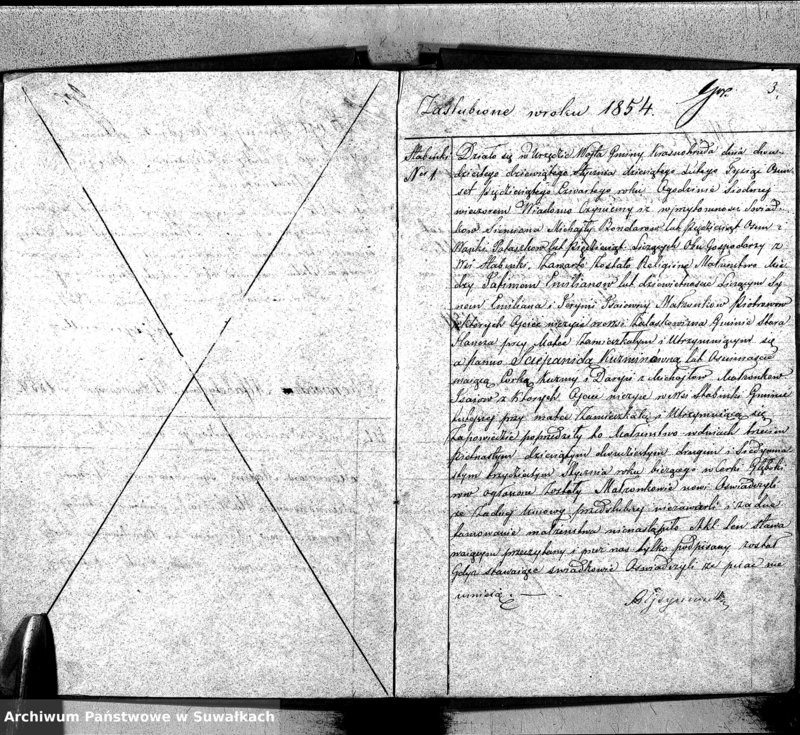 3.
Zaślubione w roku 1854.
Stabinki
Nr 1
Działo się w Urzędzie Wójta Gminy Krasnogruda dnia dwu-
dziestego dziewiątego Stycznia dziesiątego Lutego Tysiąc Osm-
set pięćdziesiątego Czwartego roku O godzinie Siódmej
wieczorem Wiadomo Czyniemy iż w przytomności Świad-
ków Siemiona Michayły Bondarew lat pięćdziesiąt Osm i
lat Pięćdziesiąt liczących Obu Gospodarzy z
Wsi Stabinki, Zawarte Zostało Religijne Małżeństwo Mię-
dzy Emilianow lat dziewietnaście liczącym Sy-
nem Emiliana i Małżonków
których Ojciec nieżyje we wsi Gminie Stara
Hancza przy Matce Zamieszkałym i Utrzymującym się
a Panną Szczepanidą Kuzminowną lat Ośmnaście
mającą Córką Kuzmy i Daryi z Michajłow Małżonków
Isaiow z których Ojciec nieżyje we Wsi Stabinki Gminie
tutejszej przy matce Zamieszkałej i Utrzymującą się
Zapowiedzie poprzedziły to Małżeństwo w dniach trzecim
piętnastym dziesiątym dwudziestym drugim i Siedymna-
stym trzydziestym Stycznia roku bieżącego w Cerkwi
ogłoszone Zostały Małżonkowie nowi Oświadczyli
że Żadnej Umowy przedślubnej niezawarli i żadne
tamowanie małżeństwa nienastąpiło Akt ten stawa-
jącym przeczytany i przez nas tylko podpisany został
Gdyż stawaiące świadkowie Oświadczyli że pisać nie
umieją.
Archiwum Państwowe w Suwałkach